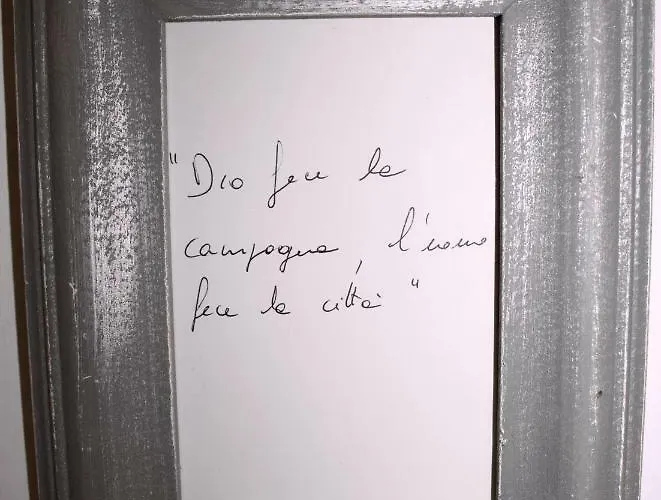 "Dio fece la
campagna, l'uomo
fece la città"